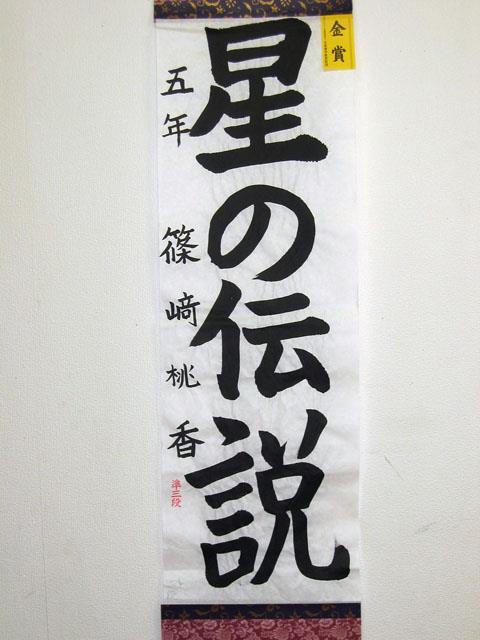 金賞
星の伝説
五年 篠﨑桃香
準三段